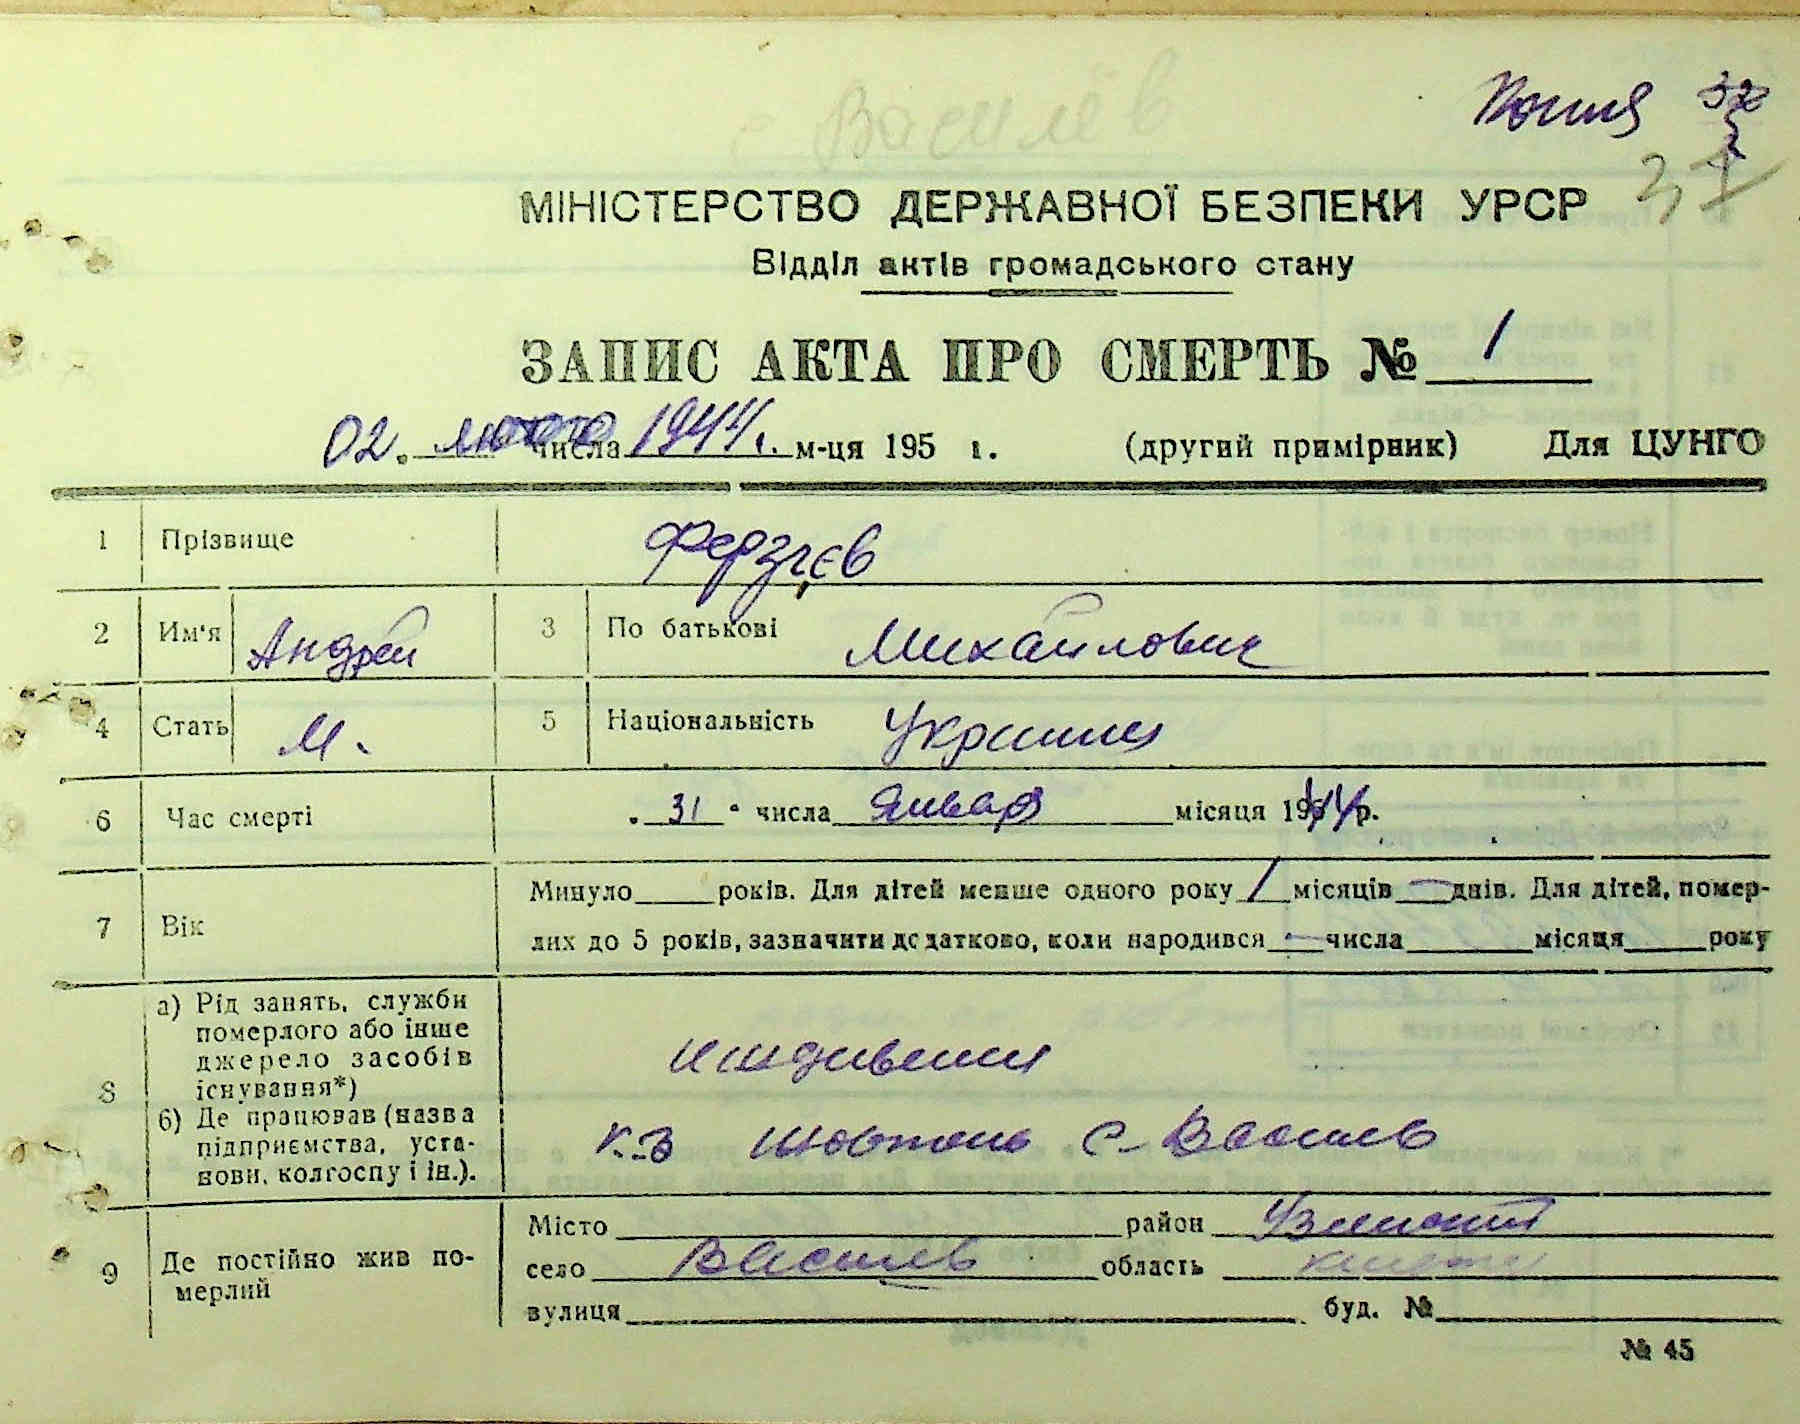 с Василёв
Копия
37
МІНІСТЕРСТВО ДЕРЖАВНОЇ БЕЗПЕКИ УРСР
Відділ актів громадського стану
ЗАПИС АКТА ПРО СМЕРТЬ № 1
02. лютого числа 1944 г. м-ця 195 г. (другий примірник) Для ЦУНГО
1 Прізвище
2 Им'я Андрей 3 По батькові Михайлович
4 Стать М. 5 Національність Украинец
6 Час смерті 31 числа Январ місяця 1944 р.
7 Вік Минуло року. Для дітей менше одного року 1 місяців — днів. Для дітей, помер-
лих до 5 років, зазначити додатково, коли народився — числа місяця року
8 а) Рід занять, служби
померлого або інше
джерело засобів
існування*)
иждивения
б) Де працював (назва
підприємства, уста-
нови, колгоспу і ін.).
к-з Жовтень с-Василев
9 Де постійно жив по-
мерлий
Місто район
село Василев область
вулиця буд. №
№ 45